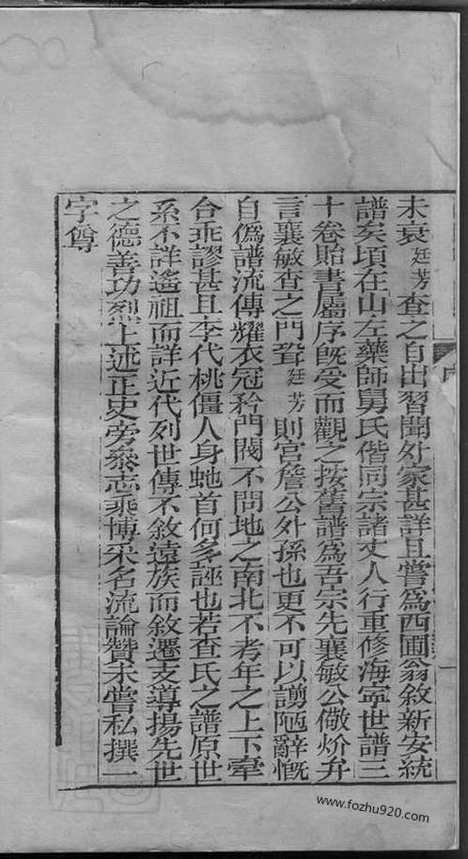 未衰廷芳查之自出習聞外家甚詳且嘗為西圃翁敘新安統
譜矣頃在山左藥師舅氏偕同宗諸丈人行重修海寧世譜三
十卷貽書屬序既受而觀之按舊譜為吾宗先襄敏公儆炌弁
言襄敏查之門聟廷芳則宮詹公外孫也更不可以謭陋辭慨
自偽譜流傳耀衣冠矜門閥不問地之南北不考年之上下牽
合乖謬甚且李代桃僵人身虵首何多誣也若查氏之譜原世
系不詳遙祖而詳近代列世傳不敘遠族而敘遷支導揚先世
之德善功烈上述正史旁叅志乘博采名流論贊未嘗私撰一
字尊
一
www.fozhu920.com